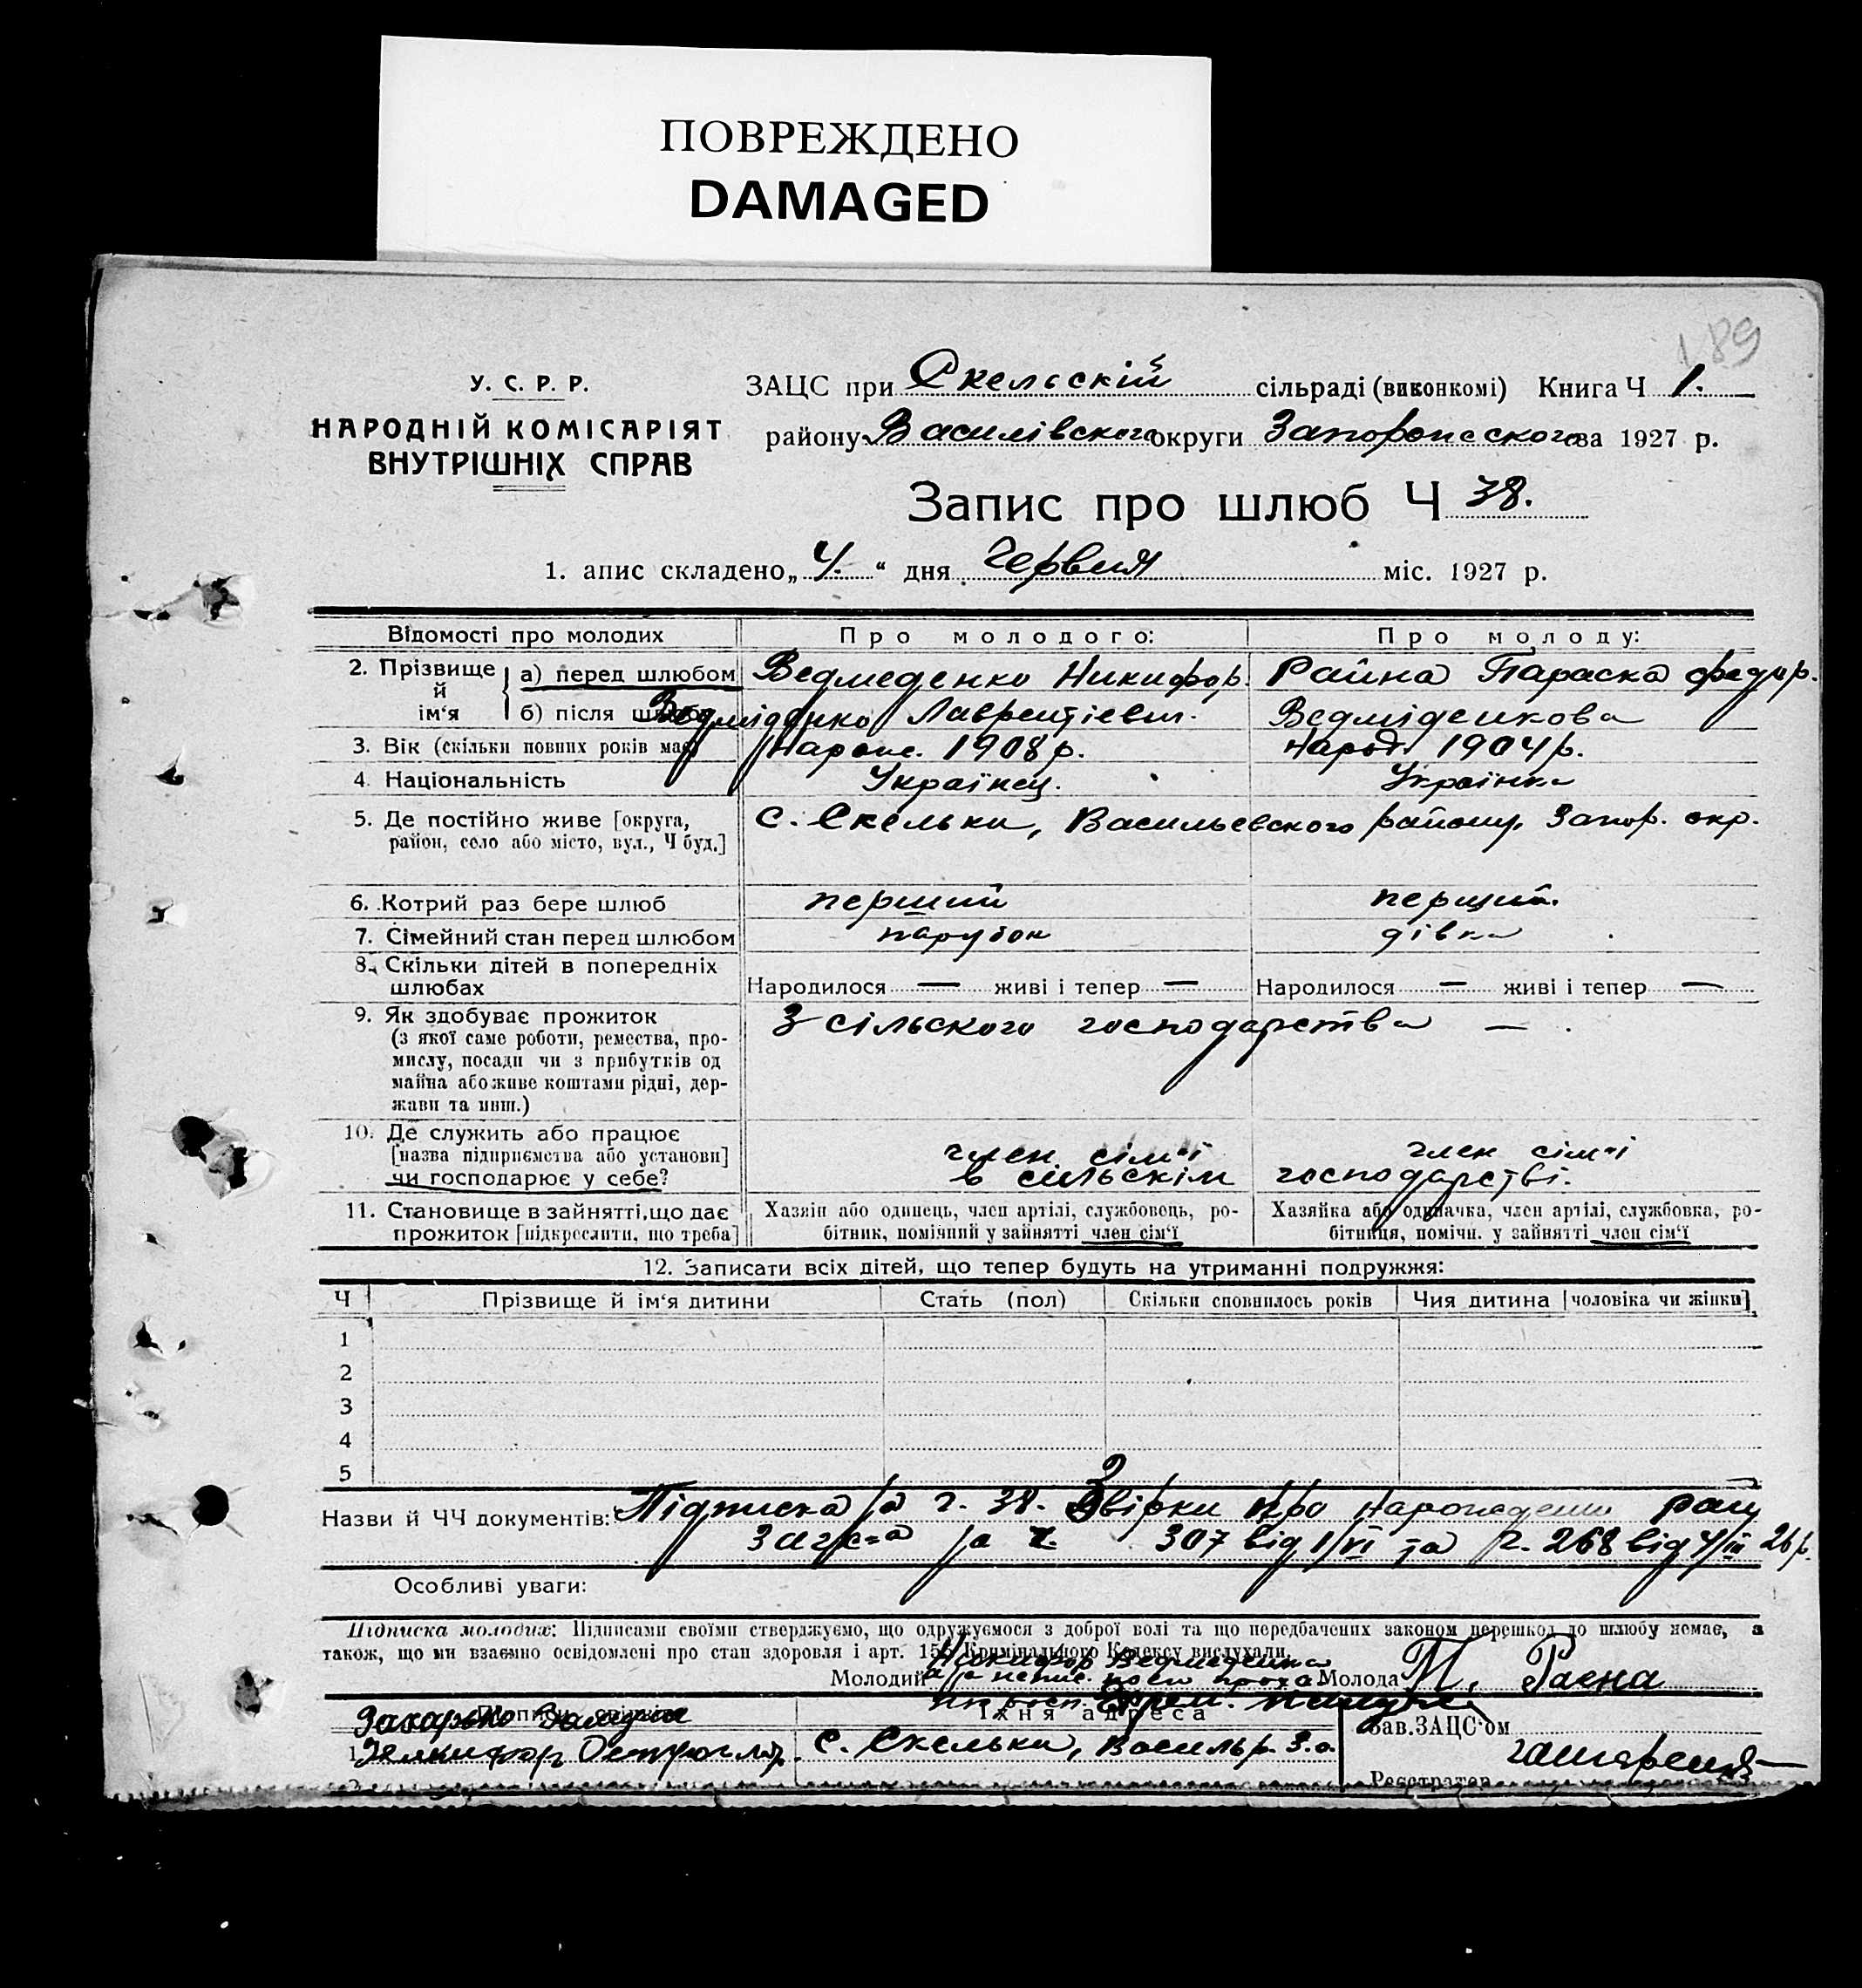 ПОВРЕЖДЕНО
DAMAGED
189
У. С. Р. Р.
НАРОДНІЙ КОМІСАРІЯТ
ВНУТРІШНІХ СПРАВ
ЗАЦС при Скельскій сільраді (виконкомі) Книга Ч 1.
району Василівского округи Запорожского за 1927 р.
Запис про шлюб Ч 38.
1. апис складено „ 4. “ дня Червня міс. 1927 р.
Відомості про молодих Про молодого: Про молоду:
2. Прізвище й ім‘я а) перед шлюбом Ведмеденко Никифор. Райна Параска Федор.
б) після шлюбу Ведміденко Лаврентіевич. Ведміденкова
3. Вік (скільки повних років має) Нарож. 1908 р. Народ. 1904 р.
4. Національність Українец. Українка
5. Де постійно живе [округа, район, село або місто, вул., Ч буд.] с. Скельки, Васильевского району, Запор. окр.
6. Котрий раз бере шлюб перший перший.
7. Сімейний стан перед шлюбом парубок дівка
8. Скільки дітей в попередніх шлюбах Народилося — живі і тепер — Народилося — живі і тепер —
9. Як здобуває прожиток З сільского господарства —
(з якої саме роботи, ремества, про-
мислу, посади чи з прибутків од
майна або живе коштами рідні, дер-
жави та инш.)
10. Де служить або працює
[назва підприємства або установи] член сім‘ї член сім‘ї
чи господарює у себе? в сільскім господарстві.
11. Становище в зайнятті, що дає прожиток [підкреслити, що треба] Хазяїн або одинець, член артілі, службовець, ро-
бітник, помічний у зайнятті член сім‘ї Хазяйка або одиначка, член артілі, службовка, ро-
бітниця, помічн. у зайнятті член сім‘ї
12. Записати всіх дітей, що тепер будуть на утриманні подружжя:
Ч Прізвище й ім‘я дитини Стать (пол) Скільки сповнилось років Чия дитина [чоловіка чи жінки]
1
2
3
4
5
Назви й ЧЧ документів: Підписка за ч. 38. Звірки про Нарождени рай
загс-а за ч. 307 від 1/VI та ч. 268 від 4/III 26 р.
Особливі уваги:
Підписка молодих: Підписами своїми стверджуємо, що одружуємося з доброї волі та що передбачених законом перешкод до шлюбу немає, а
також, що ми взаємно освідомлені про стан здоровля і арт. 155 Кримінального Кодексу вислухали.
Молодий Никифор Ведмеденко Молода П. Раена
Підписи свідків Їхня адреса Зав. ЗАЦС‘ом
1. с. Скельки, Васильр. З.о.
Реєстратор